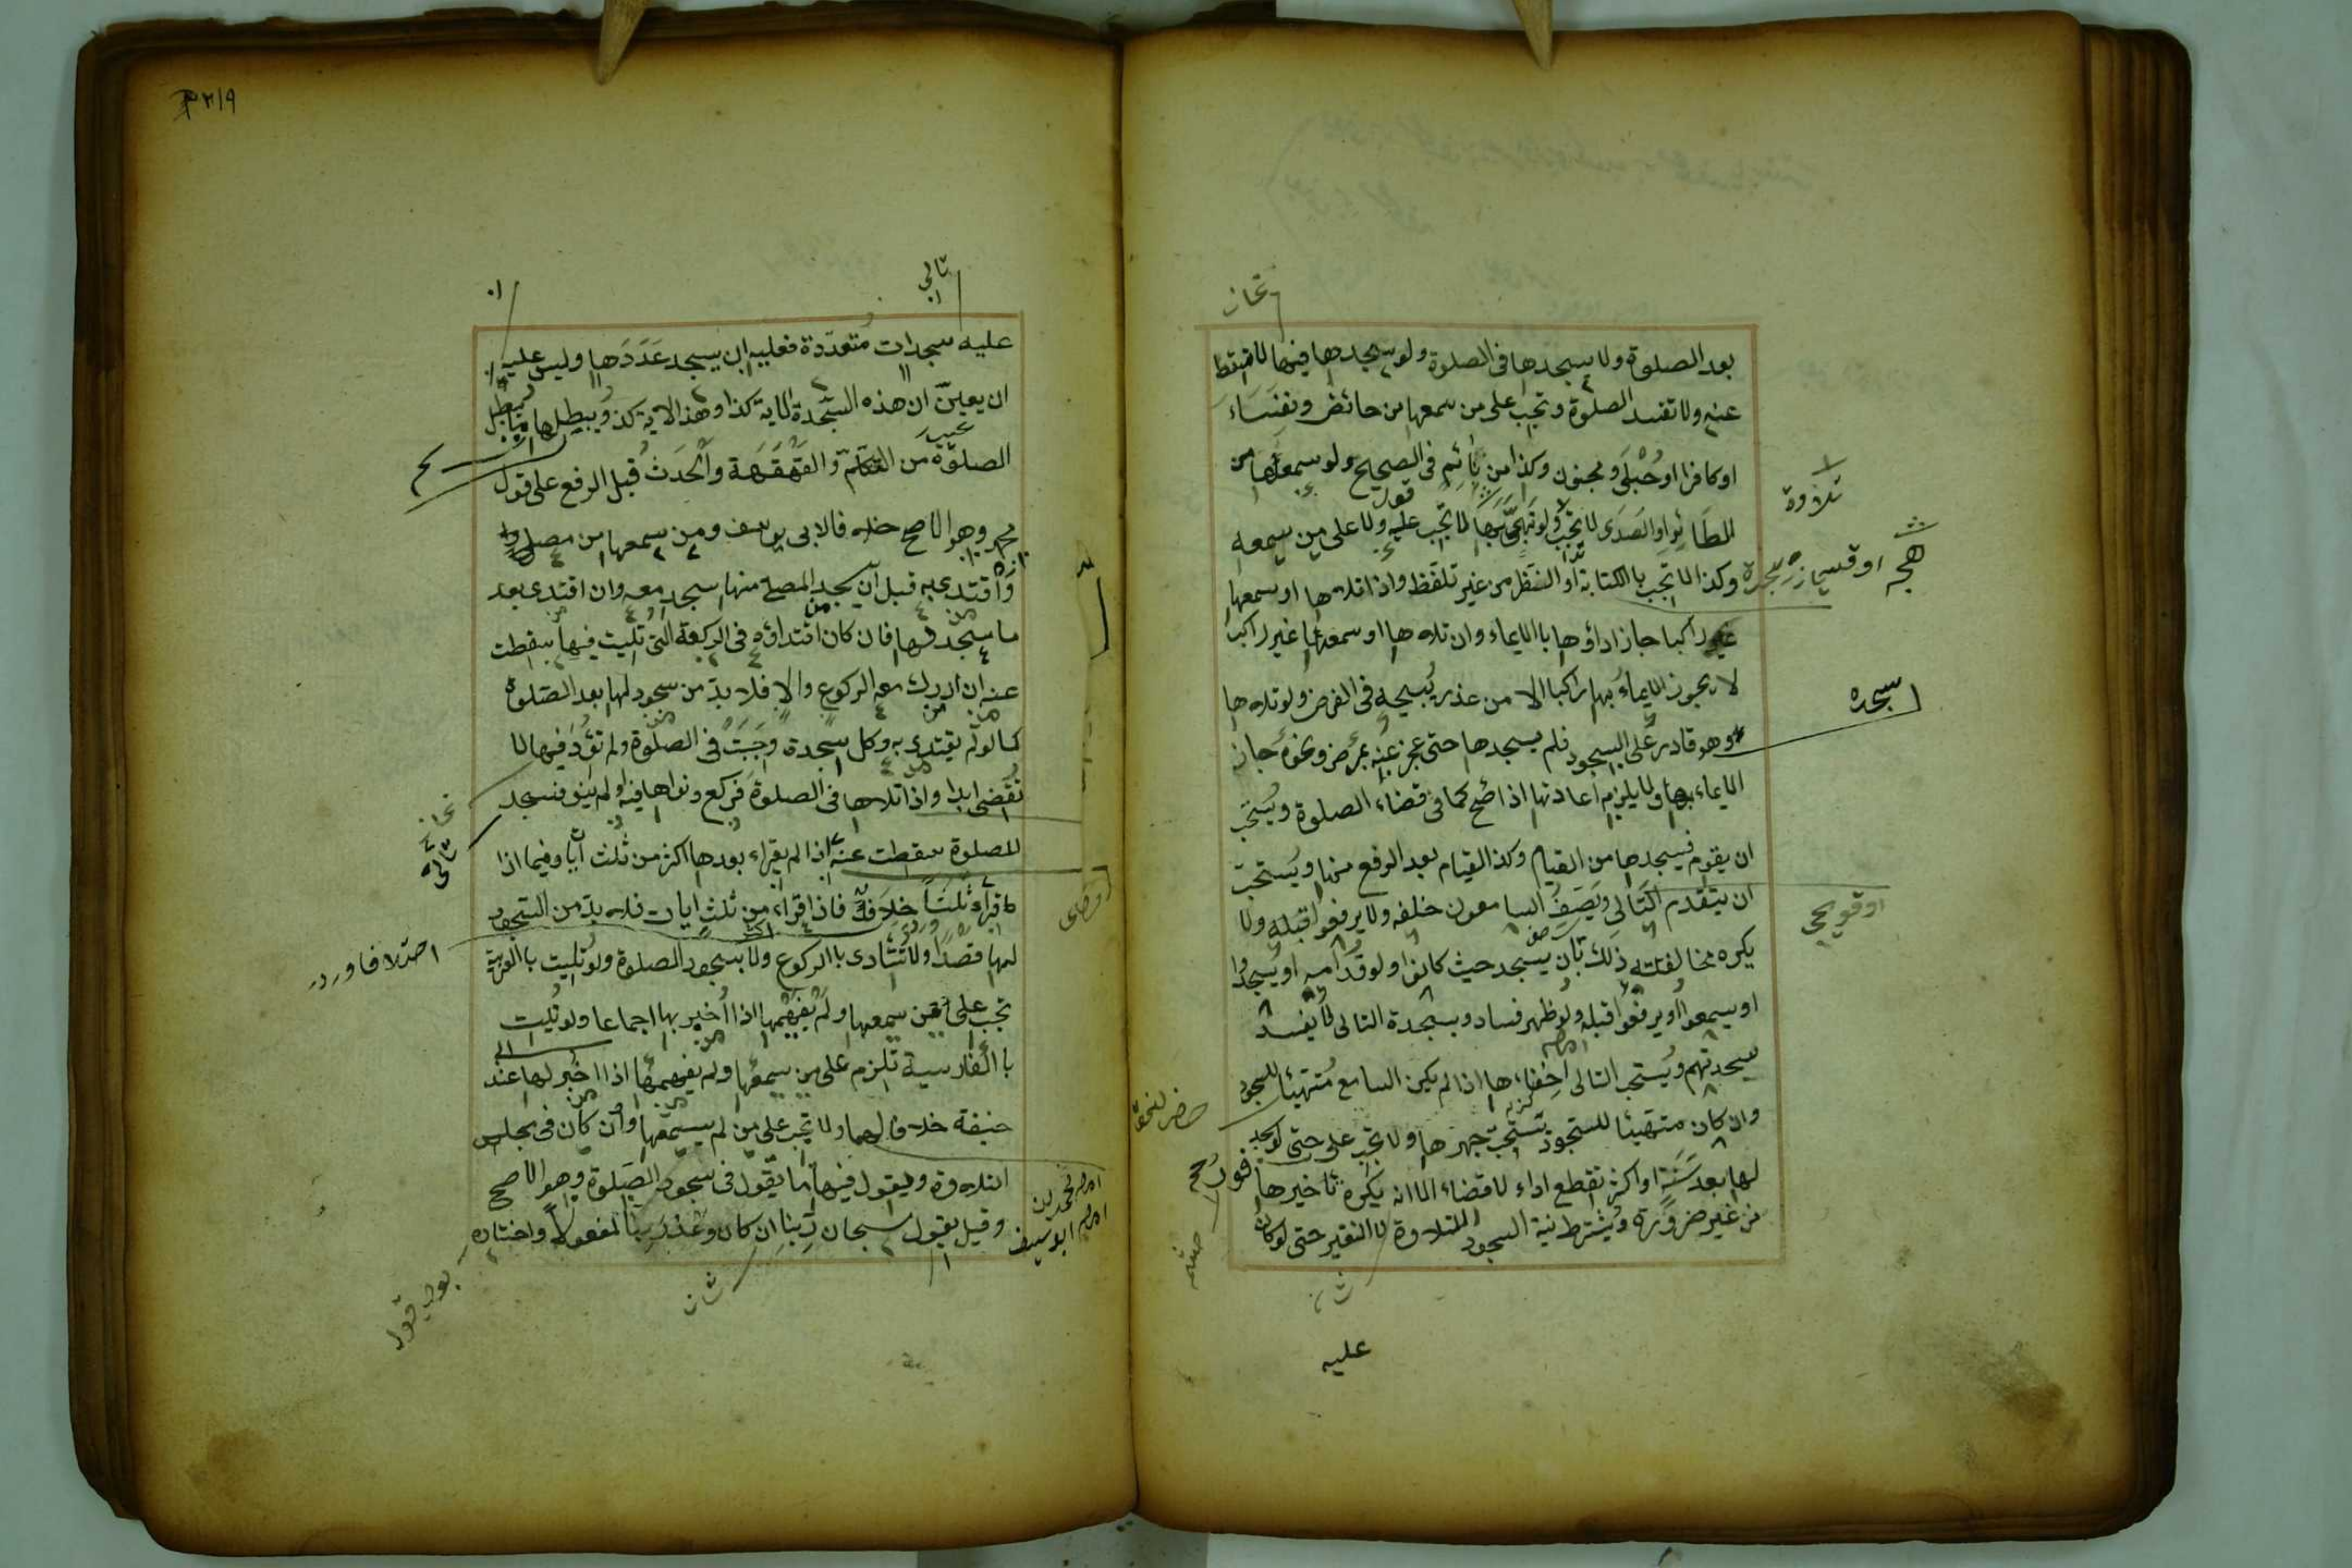 بعد الصلوة ولا يسجدها في الصلوة ولو سجدها فيها لا تسقط
عنه ولا تفسد الصلوة وتجب على من سمعها من حائض ونفساء
او كافر او حُبْلَى ومجنون وكذا من نائم في الصحيح ولو سمعها من
الطائر او الصدى لا تجب ولو تهجى بها لا تجب عليه ولا على من سمعه
وكذا لا تجب باالكتابة او النظر من غير تلفظ واذا تلاها او سمعها
راكبا جاز اداؤها باالايماء وان تلاها او سمعها غير راكب
لا يجوز الايماء بها راكبا الا من عذر يُبيحه في الفرض ولو تلاها
وهو قادر على السجود فلم يسجدها حتى عجز عنه بمرض ونحوه جاز
الايماء بها ولا يلزمه اعادتها اذا صح كما في قضاء الصلوة ويستحب
ان يقوم فيسجدها من القيام وكذا القيام بعد الرفع منها ويستحب
ان يتقدم التالي ويصف السامعون خلفه ولا يرفعوا قبله ولا
يكره مخالفته ذلك بان يسجد حيث كانوا ولو قدامه او يسجدوا
او يسمعوا او يرفعوا قبله ولو ظهر فساد وسجدة التالي لا يفسد
سجدتهم ويستحب التالي اخفاءها اذا لم يكن السامع متهيئا للسجود
وان كان متهيئا للسجود تستحب جهرها ولا تجب على حتى لو سجد
لها بعد سنة او اكثر تقطع اداء لا قضاء الا انه يكره تاخيرها
من غير ضرورة ويشترط نية السجود للتلاوة لا التغير حتى لو كان
عليه
تلاوة
سجده
اوقويجى
٣١٩
تالى
عليه سجدات متعددة فعليه ان يسجد عَدَدَها وليس عليه
ان يعين ان هذه السجدة الاية كذا وهذا الاية كذا ويبطلها ما يبطل
الصلوة من التكلم والقهقهة والحدث قبل الرفع على قول
محمد وهو الاصح خلافا لابى يوسف ومن سمعها من مصل
واقتدى به قبل ان يسجد المصلى منها سجد معه وان اقتدى بعد
ما سجد لها فان كان اقتداؤه في الركعة التى تليت فيها سقطت
عنه ان ادرك معه الركوع والا فلا بد من سجود لها بعد الصلوة
كما لو لم يقتدى به وكل سجدة وجبت في الصلوة ولم تؤد فيها لا
تقضى ابدا واذا تلاها في الصلوة فركع ونواها فيه او لم ينو فسجد
للصلوة سقطت عنه اذا لم يقراء بعدها اكثر من ثلث ايا وفيما اذا
قراء ثلثا خلاف فاذا قراء من ثلث ايات فلا بد من السجود
لها قصدا ولا تتادى باالركوع ولا بسجود الصلوة ولو تليت باالعربية
تجب على من سمعها ولم يفهمها اذا اخبر بها اجماعا ولو تليت
باالفارسية تلزم على من سمعها ولم يفهمها اذا اخبر لها عند ابى
حنيفة خلافا لهما ولا تجب على من لم يسمعها وان كان في مجلس
التلاوة ويقول فيها ما يقول في سجود الصلوة وهو الاصح
وقيل يقول سبحان ربنا ان كان وعد ربنا لمفعولا واختاره
امام محمد
امام ابو يوسف